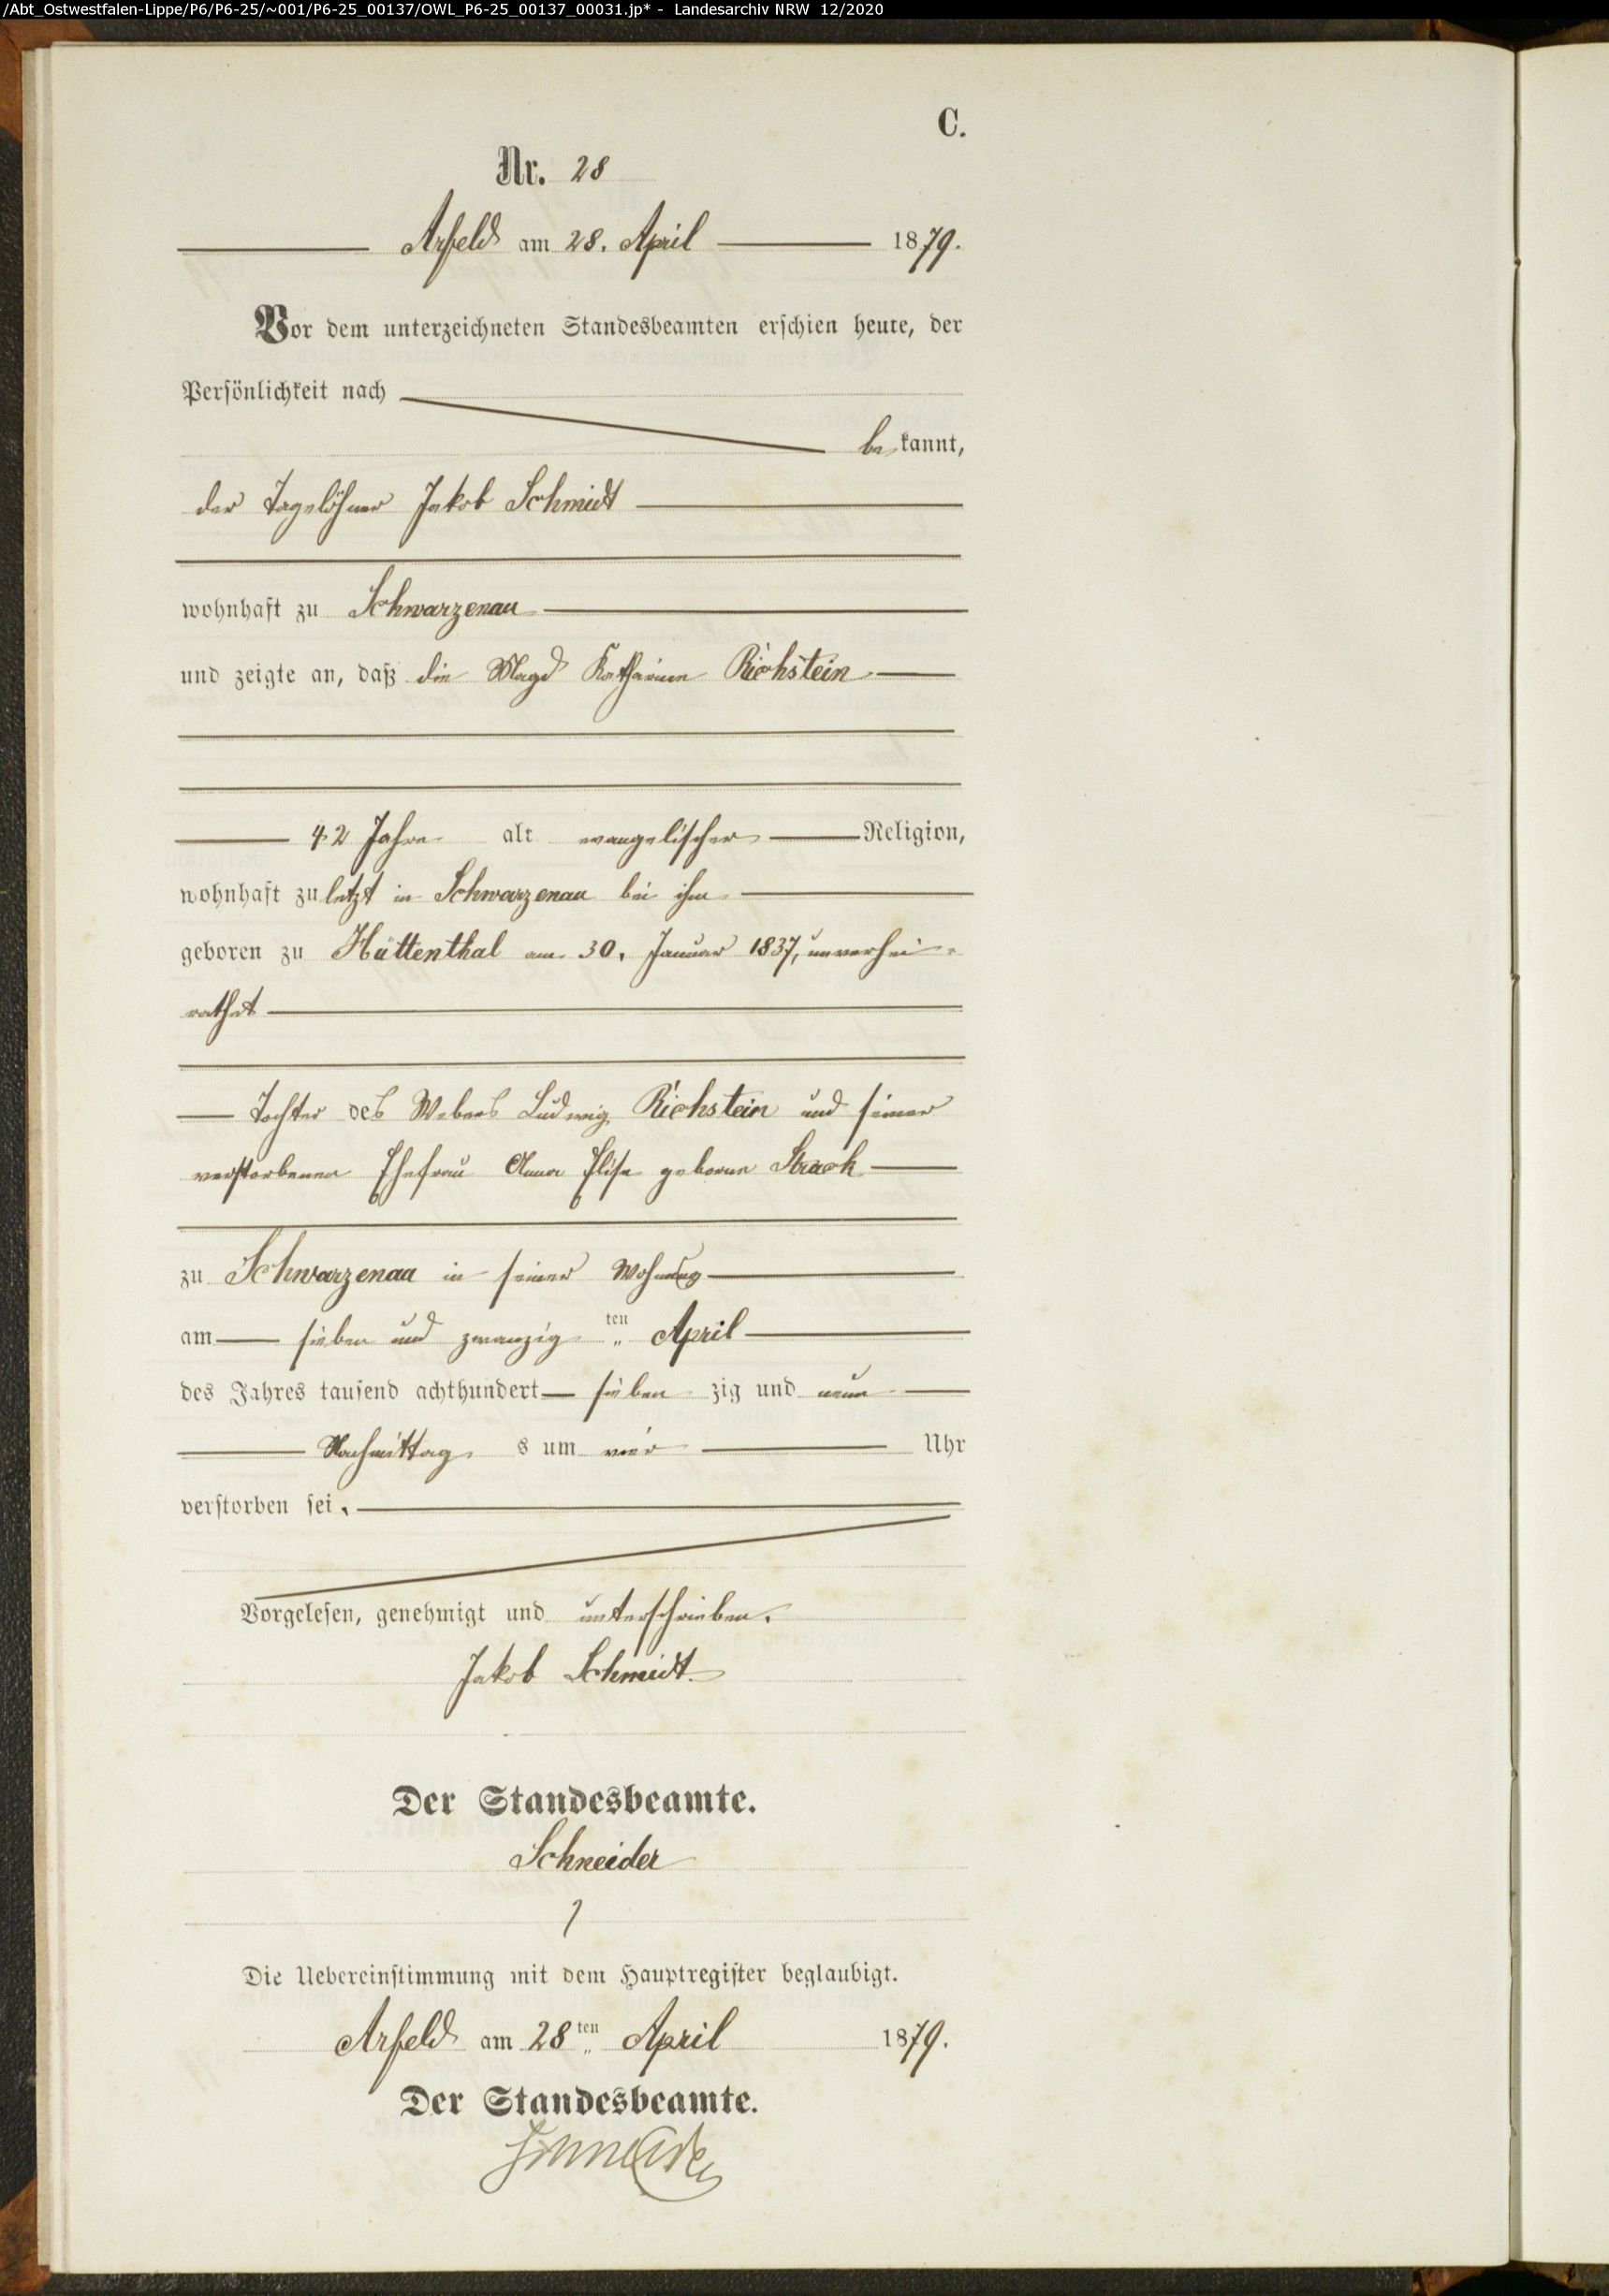 /Abt_Ostwestfalen-Lippe/P6/P6-25/~001/P6-25_00137/OWL_P6-25_00137_00031.jp* - Landesarchiv NRW 12/2020
C.
Nr. 28
Arfeld am 28. April 1879.
Vor dem unterzeichneten Standesbeamten erschien heute, der
Persönlichkeit nach
bekannt,
der Tagelöhner Jakob Schmidt
wohnhaft zu Schwarzenau
und zeigte an, daß die Magd Katharine Richstein
42 Jahre alt evangelischer Religion,
wohnhaft zuletzt in Schwarzenau bei ihm
geboren zu Hüttenthal am 30. Januar 1837, unverhei-
rathet
Tochter des Webers Ludwig Richstein und seiner
verstorbenen Ehefrau Anna Elise geborene Strack
zu Schwarzenau in seiner Wohnung
am sieben und zwanzig ten April
des Jahres tausend achthundert sieben zig und neun
Nachmittag s um vier Uhr
verstorben sei.
Vorgelesen, genehmigt und unterschrieben.
Jakob Schmidt
Der Standesbeamte.
Schneider
Die Uebereinstimmung mit dem Hauptregister beglaubigt.
Arfeld am 28ten April 1879.
Der Standesbeamte.
Schneider